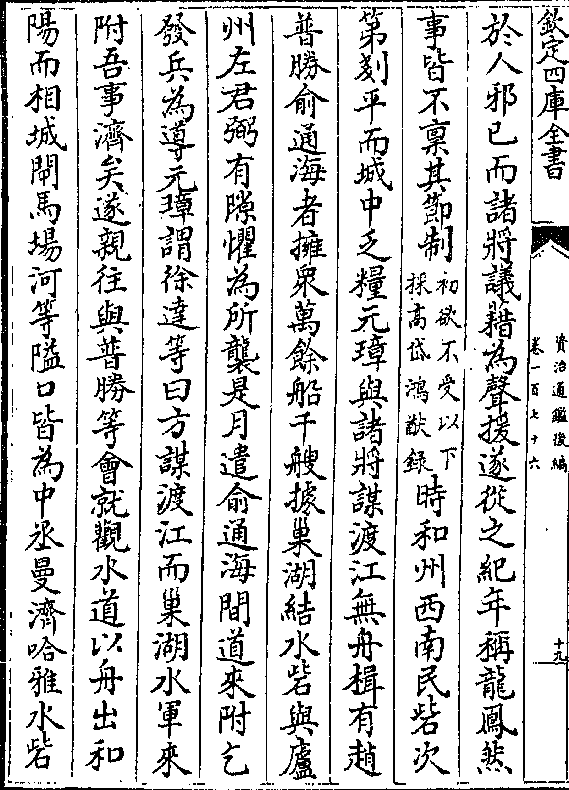 欽定四庫全書
資治通鑑後編
卷一百七十六
十九
於人邪已而諸將議藉為聲援遂從之紀年稱龍鳳然
事皆不禀其節制初欲不受以下
採高岱鴻猷録時和州西南民砦次
第剗平而城中乏糧元璋與諸將謀渡江無舟楫有趙
普勝俞通海者擁衆萬餘船千艘據巢湖結水砦與廬
州左君弼有隙懼為所襲是月遣俞通海間道來附乞
發兵為導元璋謂徐達等曰方謀渡江而巢湖水軍來
附吾事濟矣遂親往與普勝等會就觀水道以舟出和
陽而相城閘馬場河等隘口皆為中丞曼濟哈雅水砦